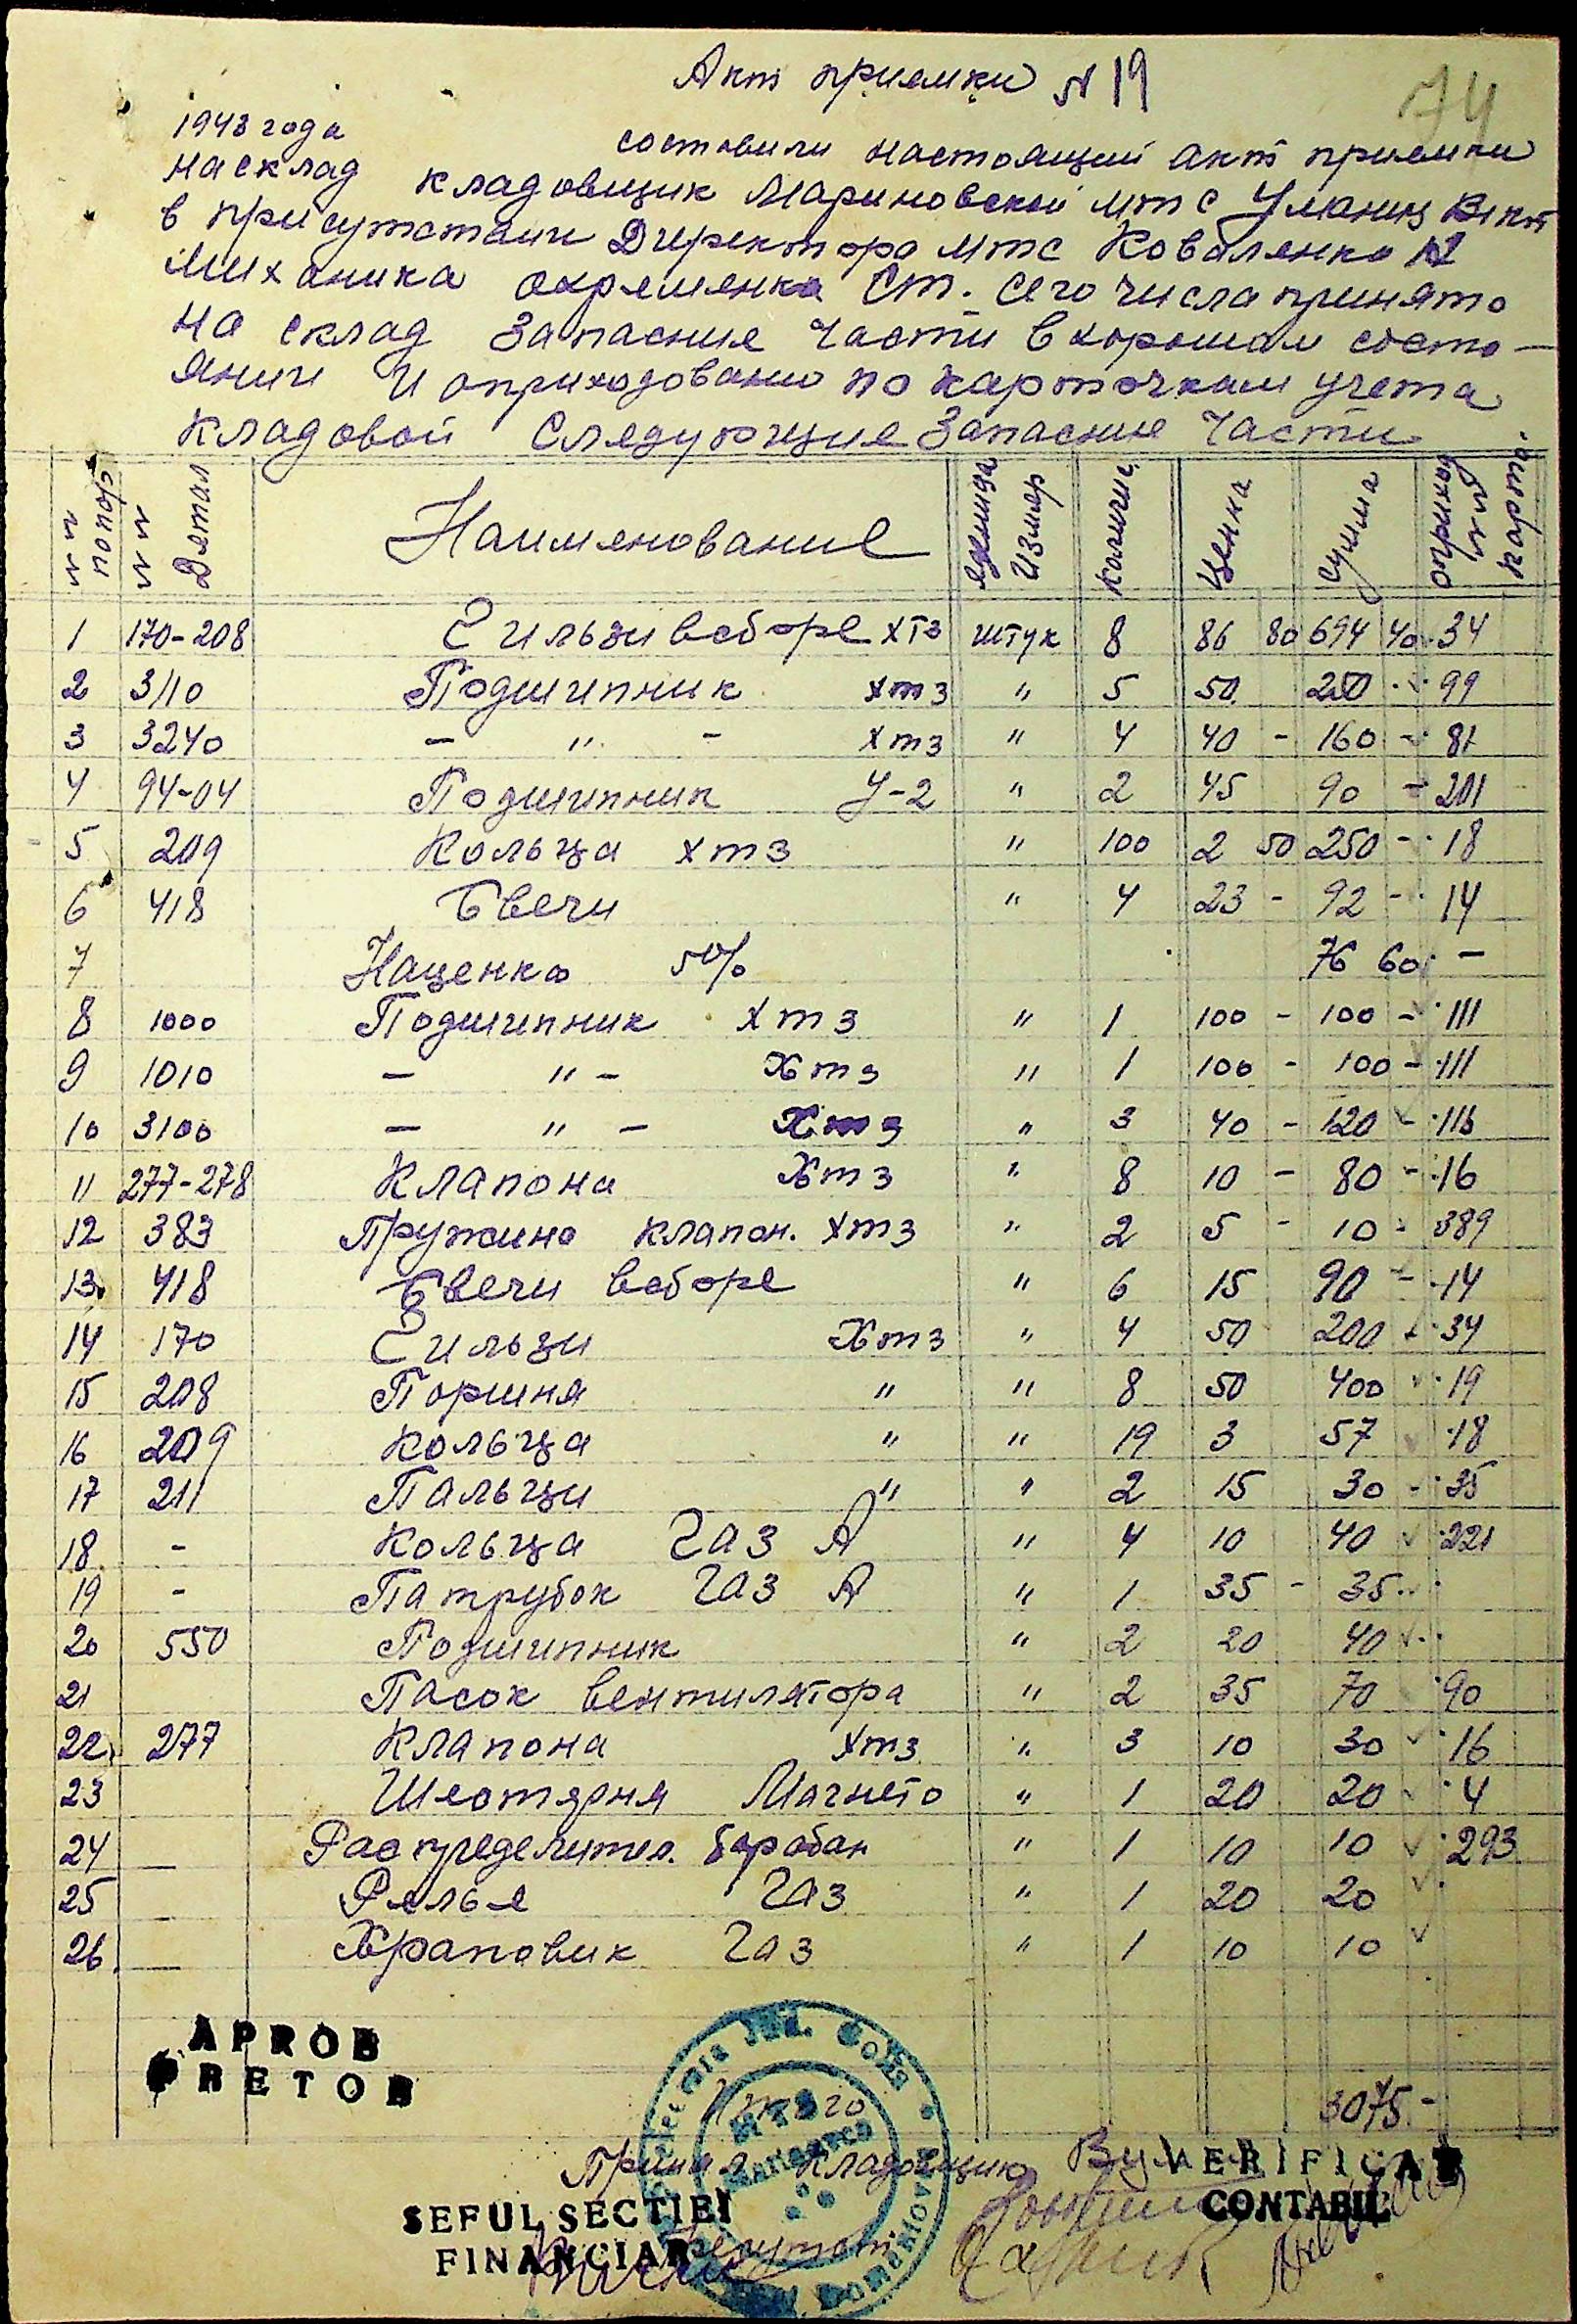 Акт приемки № 19
74
1943 года составили настоящий акт приемки
на склад кладовщик Мариновской мтс Уманиц Викт
в присутстаии Директора мтс Коваленко
Миханика Охременка Ст. сего числа принято
на склад Запасние части в хорошом состо-
янии и оприходовано по карточкам учета
кладовой Следующие Запасние Части
№ № по пор № № Детал Наименование еденица Измер количис. ценка сумма оприход № № карто.
1 170-208 Гильзи всборе хтз штук 8 86 80 694 40 34
2 3110 Подшипник хтз " 5 50 250 - 99
3 3240 - " - хтз " 4 40 - 160 - 81
4 94-04 Подшипник У-2 " 2 45 90 - 201
5 209 Кольца хтз " 100 2 50 250 - 18
6 418 Свечи " 4 23 - 92 - 14
7 Наценка 5% 76 60 -
8 1000 Подшипник хтз " 1 100 - 100 - 111
9 1010 - " - Хтз " 1 100 - 100 - 111
10 3100 - " - Хтз " 3 40 - 120 - 116
11 277-278 Клапона Хтз " 8 10 - 80 - 16
12 383 Пружина клапон. хтз " 2 5 - 10 - 389
13 418 Свечи всборе " 6 15 90 - 14
14 170 Гильзи Хтз " 4 50 200 34
15 208 Поршня " " 8 50 400 19
16 209 Кольца " " 19 3 57 18
17 211 Пальци " " 2 15 30 - 35
18 - Кольца Газ А " 4 10 40 221
19 - Патрубок Газ А " 1 35 - 35
20 550 Подшипник " 2 20 40
21 Пасок вентилятора " 2 35 70 90
22 277 Клапона хтз " 3 10 30 16
23 Шеотерня Магнето " 1 20 20 4
24 — Распределител. барабан " 1 10 10 293
25 — Релье Газ " 1 20 20
26. — Храповик Газ " 1 10 10
APROB
PRETOR
Итого 3075.-
Принял кладовщик
VERIFICAT
CONTABIL
SEFUL SECTIEI
FINANCIAR
Jud. Golta
MTS